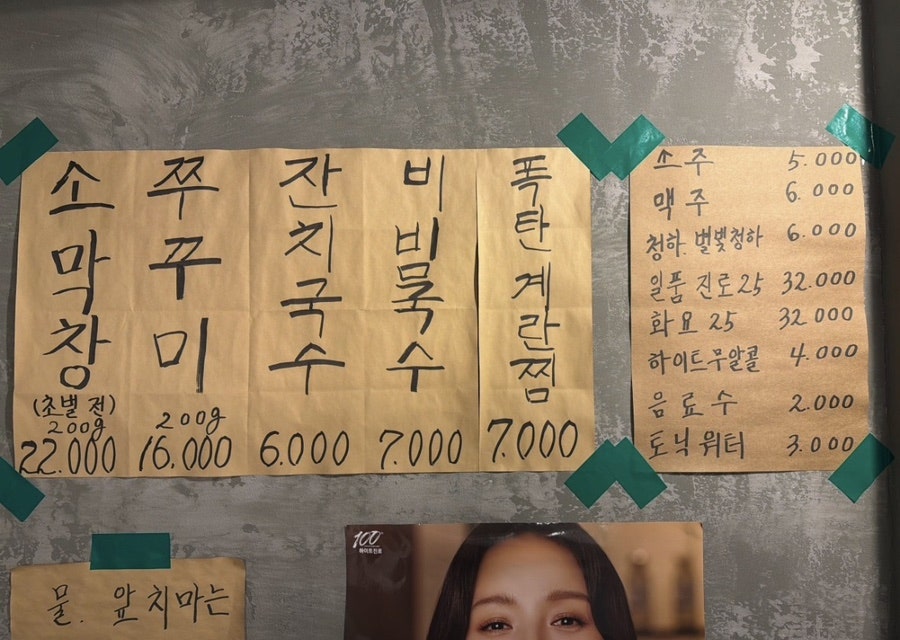 소막창
(초벌 전)
200g
22.000
쭈꾸미
200g
16.000
잔치국수
6.000
비빔국수
7.000
폭탄계란찜
7.000
소주 5.000
맥주 6.000
청하. 별빛청하 6.000
일품 진로25 32.000
화요 25 32.000
하이트무알콜 4.000
음료수 2.000
토닉워터 3.000
물. 앞치마는
100
하이트진로